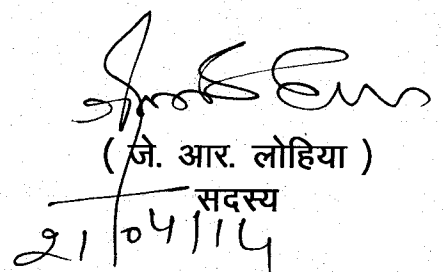 ( जे. आर. लोहिया )
सदस्य
21/04/14